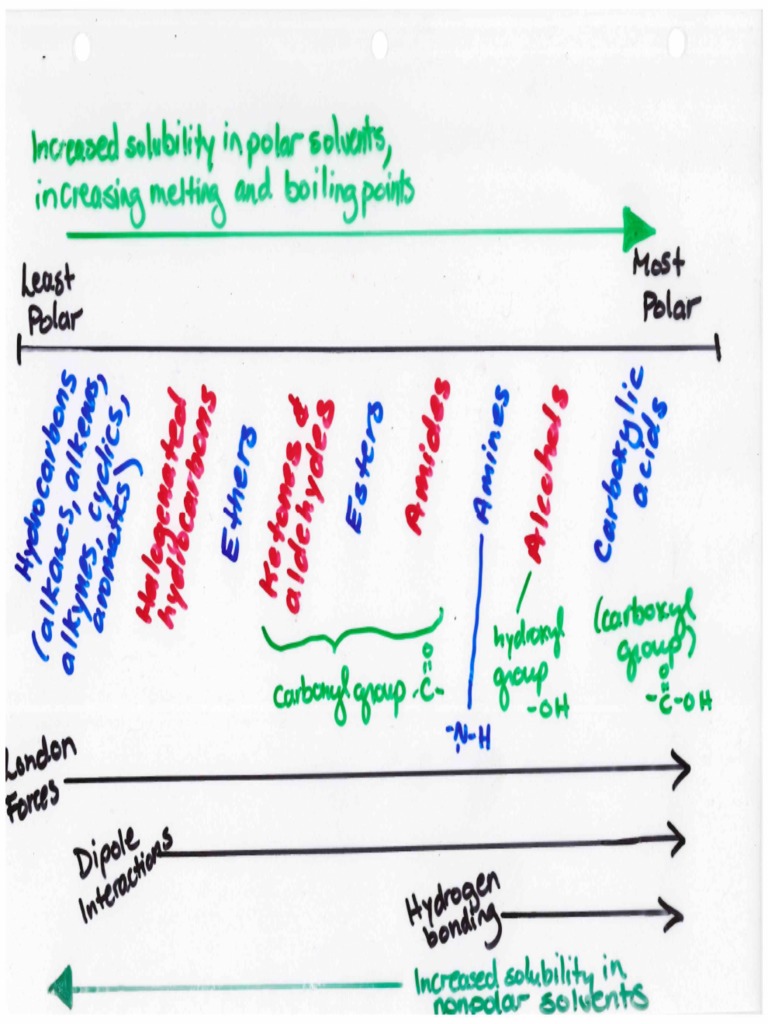 Increased solubility in polar solvents,
increasing melting and boiling points
Least
Polar
Most
Polar
Hydrocarbons
(alkanes, alkenes,
alkynes, cyclics,
aromatics)
Halogenated
hydrocarbons
Ethers
Ketones &
aldehydes
Esters
Amides
Amines
Alcohols
Carboxylic
acids
carbonyl group
O
-C-
-N-H
hydroxyl
group
-OH
(carboxyl
group)
O
-C-OH
London
Forces
Dipole
Interactions
Hydrogen
bonding
Increased solubility in
nonpolar solvents